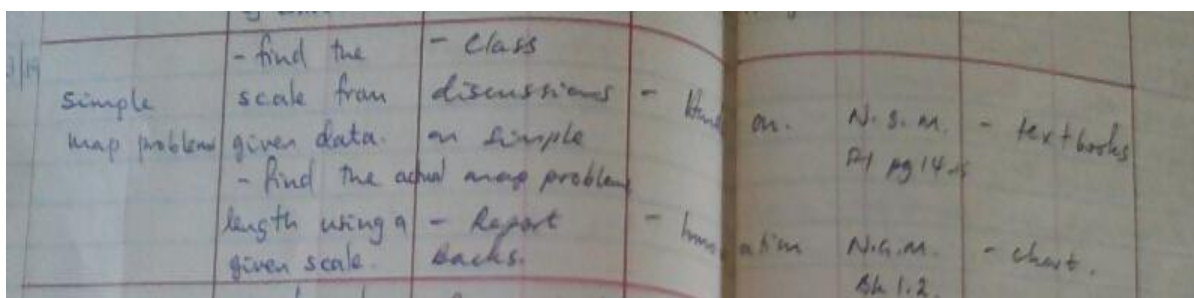 Simple
map problems
- find the
scale from
given data.
- find the actual
length using a
given scale.
- Class
discussions
on simple
map problems
- Report
backs.
-
on.
-
N.G.M.
pg 14
N.G.M.
Bk 1.2.
- textbooks
- chart.